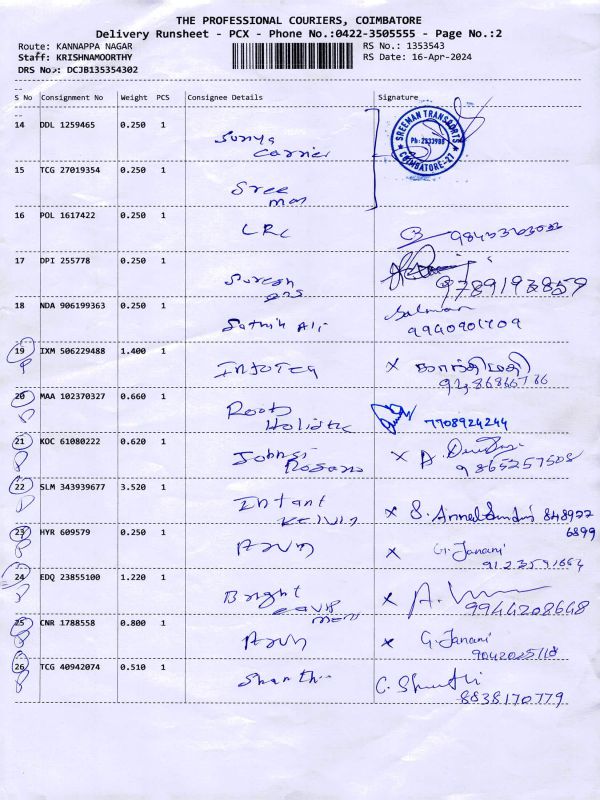 THE PROFESSIONAL COURIERS, COIMBATORE
Delivery Runsheet - PCX - Phone No.:0422-3505555 - Page No.:2
Route: KANNAPPA NAGAR RS No.: 1353543
Staff: KRISHNAMOORTHY RS Date: 16-Apr-2024
DRS No.: DCJB135354302
S No Consignment No Weight PCS Consignee Details Signature
14 DDL 1259465 0.250 1
Surya
Carrier
SREEMAN TRANSPORTS
Ph: 2333988
COIMBATORE-27
15 TCG 27019354 0.250 1
Sree
man
16 POL 1617422 0.250 1
LRC
17 DPI 255778 0.250 1
Suresh
9789193859
18 NDA 906199363 0.250 1
Sathik Ali
Salman
9940901709
19 IXM 506229488 1.400 1
INFOTEQ
x காந்திமதி
20 MAA 102370327 0.660 1
Roots
Holistic
7708924244
21 KOC 61080222 0.620 1
x
9865257508
22 SLM 343939677 3.520 1
Infant
Kelvin
x 848922
6899
23 HYR 609579 0.250 1
Arun
x G. Janani
24 EDQ 23855100 1.220 1
Bright
x
9944208648
25 CNR 1788558 0.800 1
Arun
x G. Janani
9042025118
26 TCG 40942074 0.510 1
Shanthi
C. Shanthi
8838170779